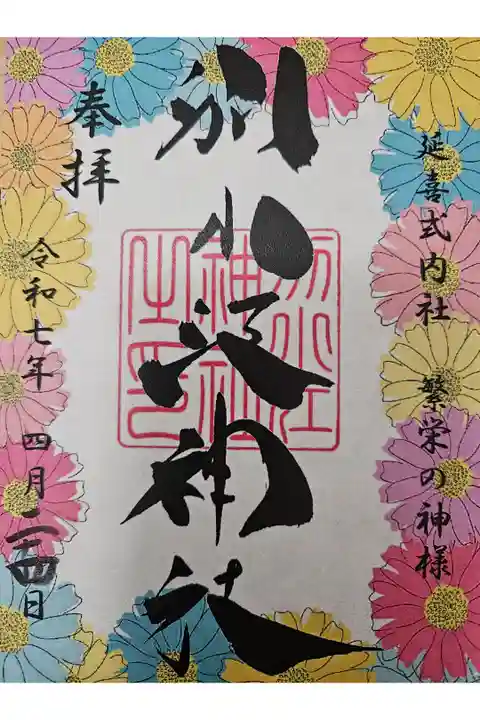 延喜式内社 繁栄の神様
別小江神社
別小江
神社
之印
奉拝
令和七年 四月二十四日